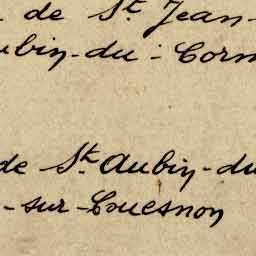 de St. Jean-
ubin-du-Corm
de St. Aubin-du
-sur-Couesnon